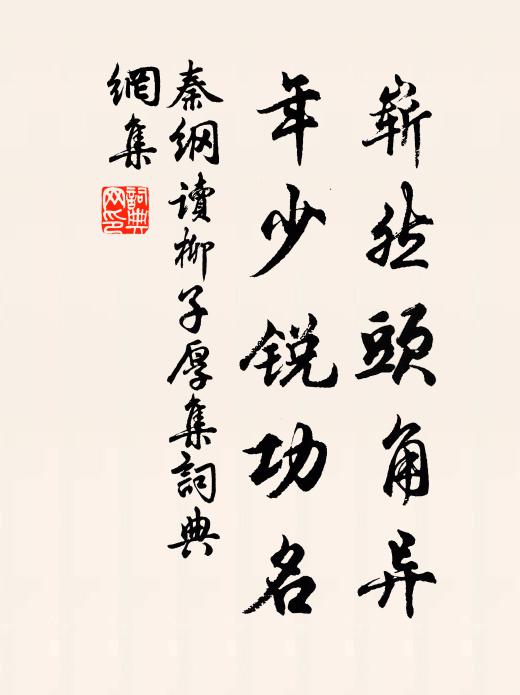 嶄然頭角异
年少銳功名
秦綱讀柳子厚集詞典
網集
詞典網印